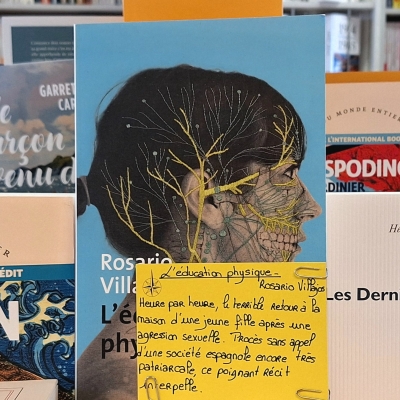 GARRET
CAR
e
arçon
venu d
Rosario
Villa
L'é
phy
L'éducation physique -
Rosario Villajos
Heure par heure, le terrible retour à la
maison d'une jeune fille après une
agression sexuelle. Procès sans appel
d'une société espagnole encore très
patriarcale, ce poignant récit
interpelle.
U MONDE ENTIER
L'INTERNATIONAL BOO
SPODINO
DINIER
Les Dern
ÉDIT
N